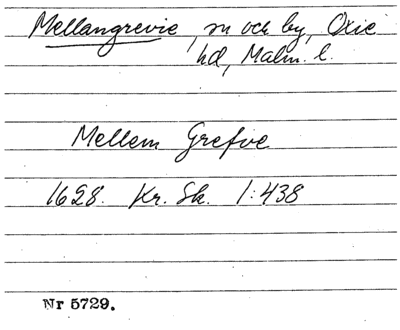 Mellangrevie, sn och by, Oxie
hd, Malm. l.
Mellem Grefve
1628. Kr. Sk. 1:438
Nr 5729.